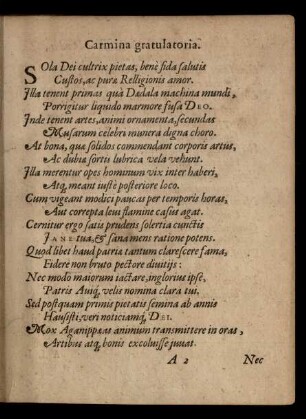 Carmina gratulatoria.
SOla Dei cultrix pietas, benè fida salutis
Custos, ac puræ Relligionis amor.
Illa tenent primas quà Dædala machina mundi,
Porrigitur liquido marmore fusa DEO.
Inde tenent artes, animi ornamenta, secundas
Musarum celebri munera digna choro.
At bona, quæ solidos commendant corporis artus,
Ac dubia sortis lubrica vela vehunt.
Illa merentur opes hominum vix inter haberi,
Atq, meant iustè posteriore loco.
Cum vigeant modicè paucas per temporis horas,
Aut correpta leui flamine casus agat.
Cernitur ergo satis prudens solertia cunctis
JANE tua, & sana mens ratione potens.
Quod libet haud patria tantum clarescere fama,
Fidere non bruto pectore diuitijs:
Nec modo maiorum iactare, inglorius ipse,
Patris Auiq, velis nomina clara tui.
Sed postquam primis pietatis semina ab annis
Hausisti, veri noticiamq, DEI.
Mox Aganippæas animum transmittere in oras,
Artibus atq, bonis excoluisse juuat.
A 2
Nec